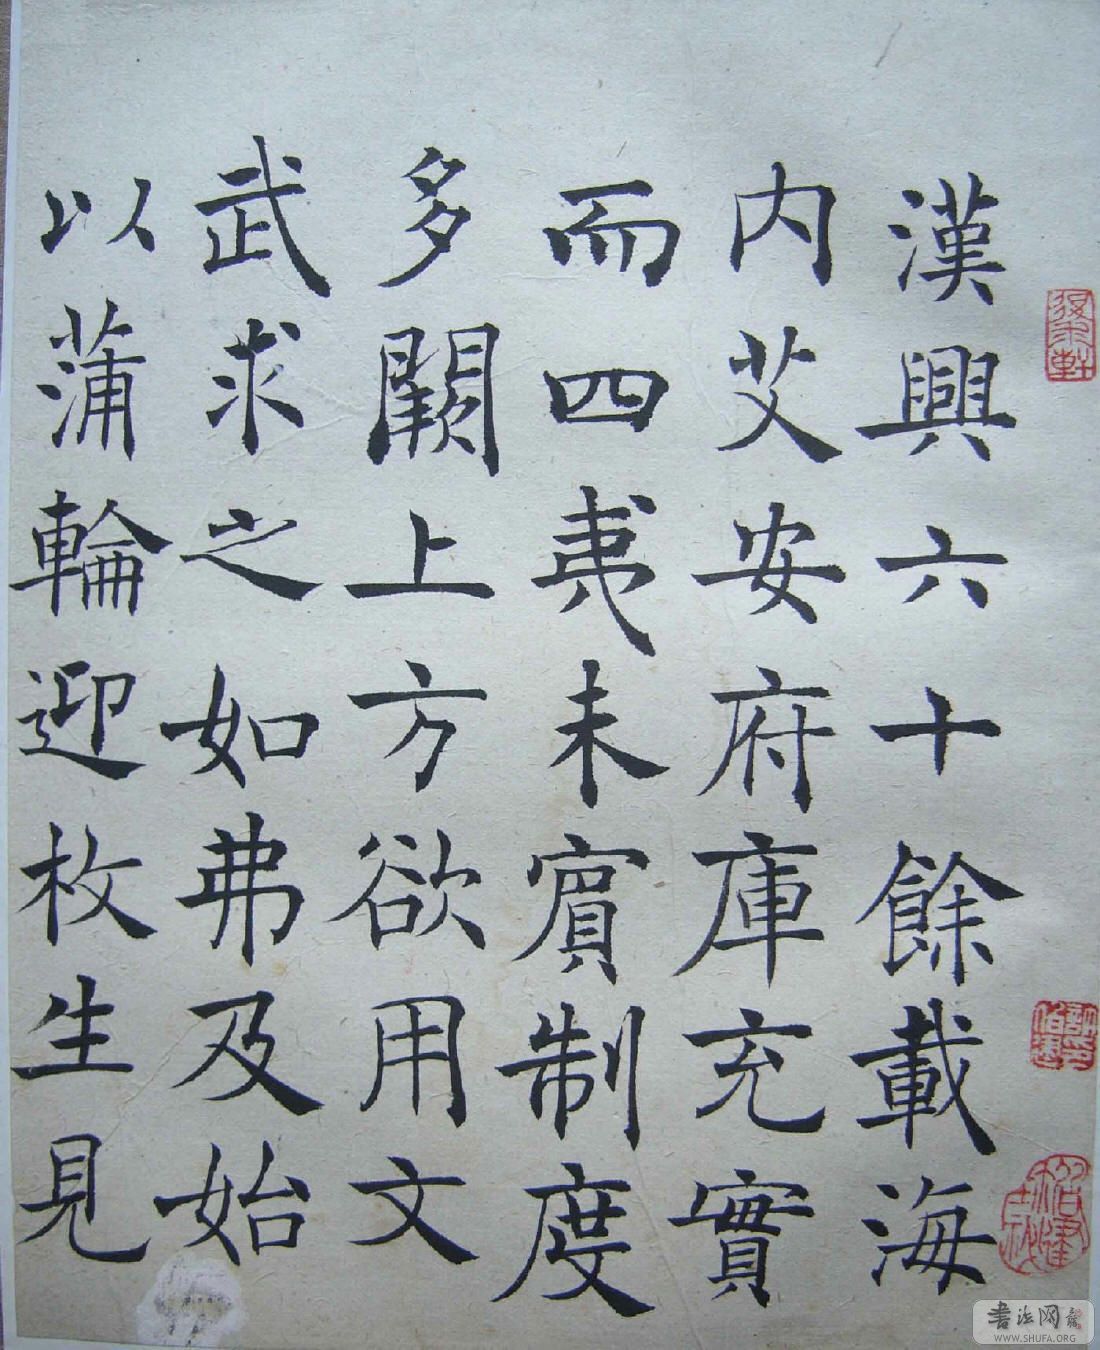 漢興六十餘載海
内艾安府庫充實
而四夷未賓制度
多闕上方欲用文
武求之如弗及始
以蒲輪迎枚生見
書法网
WWW.SHUFA.ORG